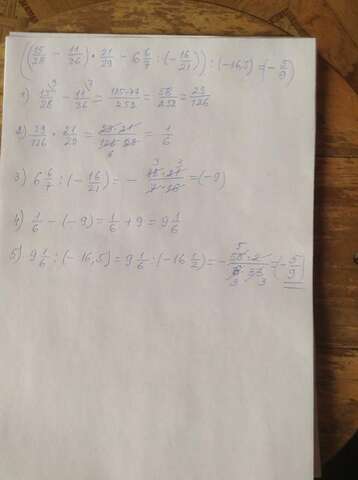 ((15/28 - 11/36) · 21/29 - 6 6/7 : (-16/21)) : (-16,5) = (-5/9)
1) 15/28 - 11/36 = 135-77/252 = 58/252 = 29/126
2) 29/126 · 21/29 = 29·21/126·29 = 1/6
3) 6 6/7 : (-16/21) = - 48·21/7·16 = (-9)
4) 1/6 - (-9) = 1/6 + 9 = 9 1/6
5) 9 1/6 : (-16,5) = 9 1/6 : (-16 1/2) = - 55·2/6·33 = (-5/9)